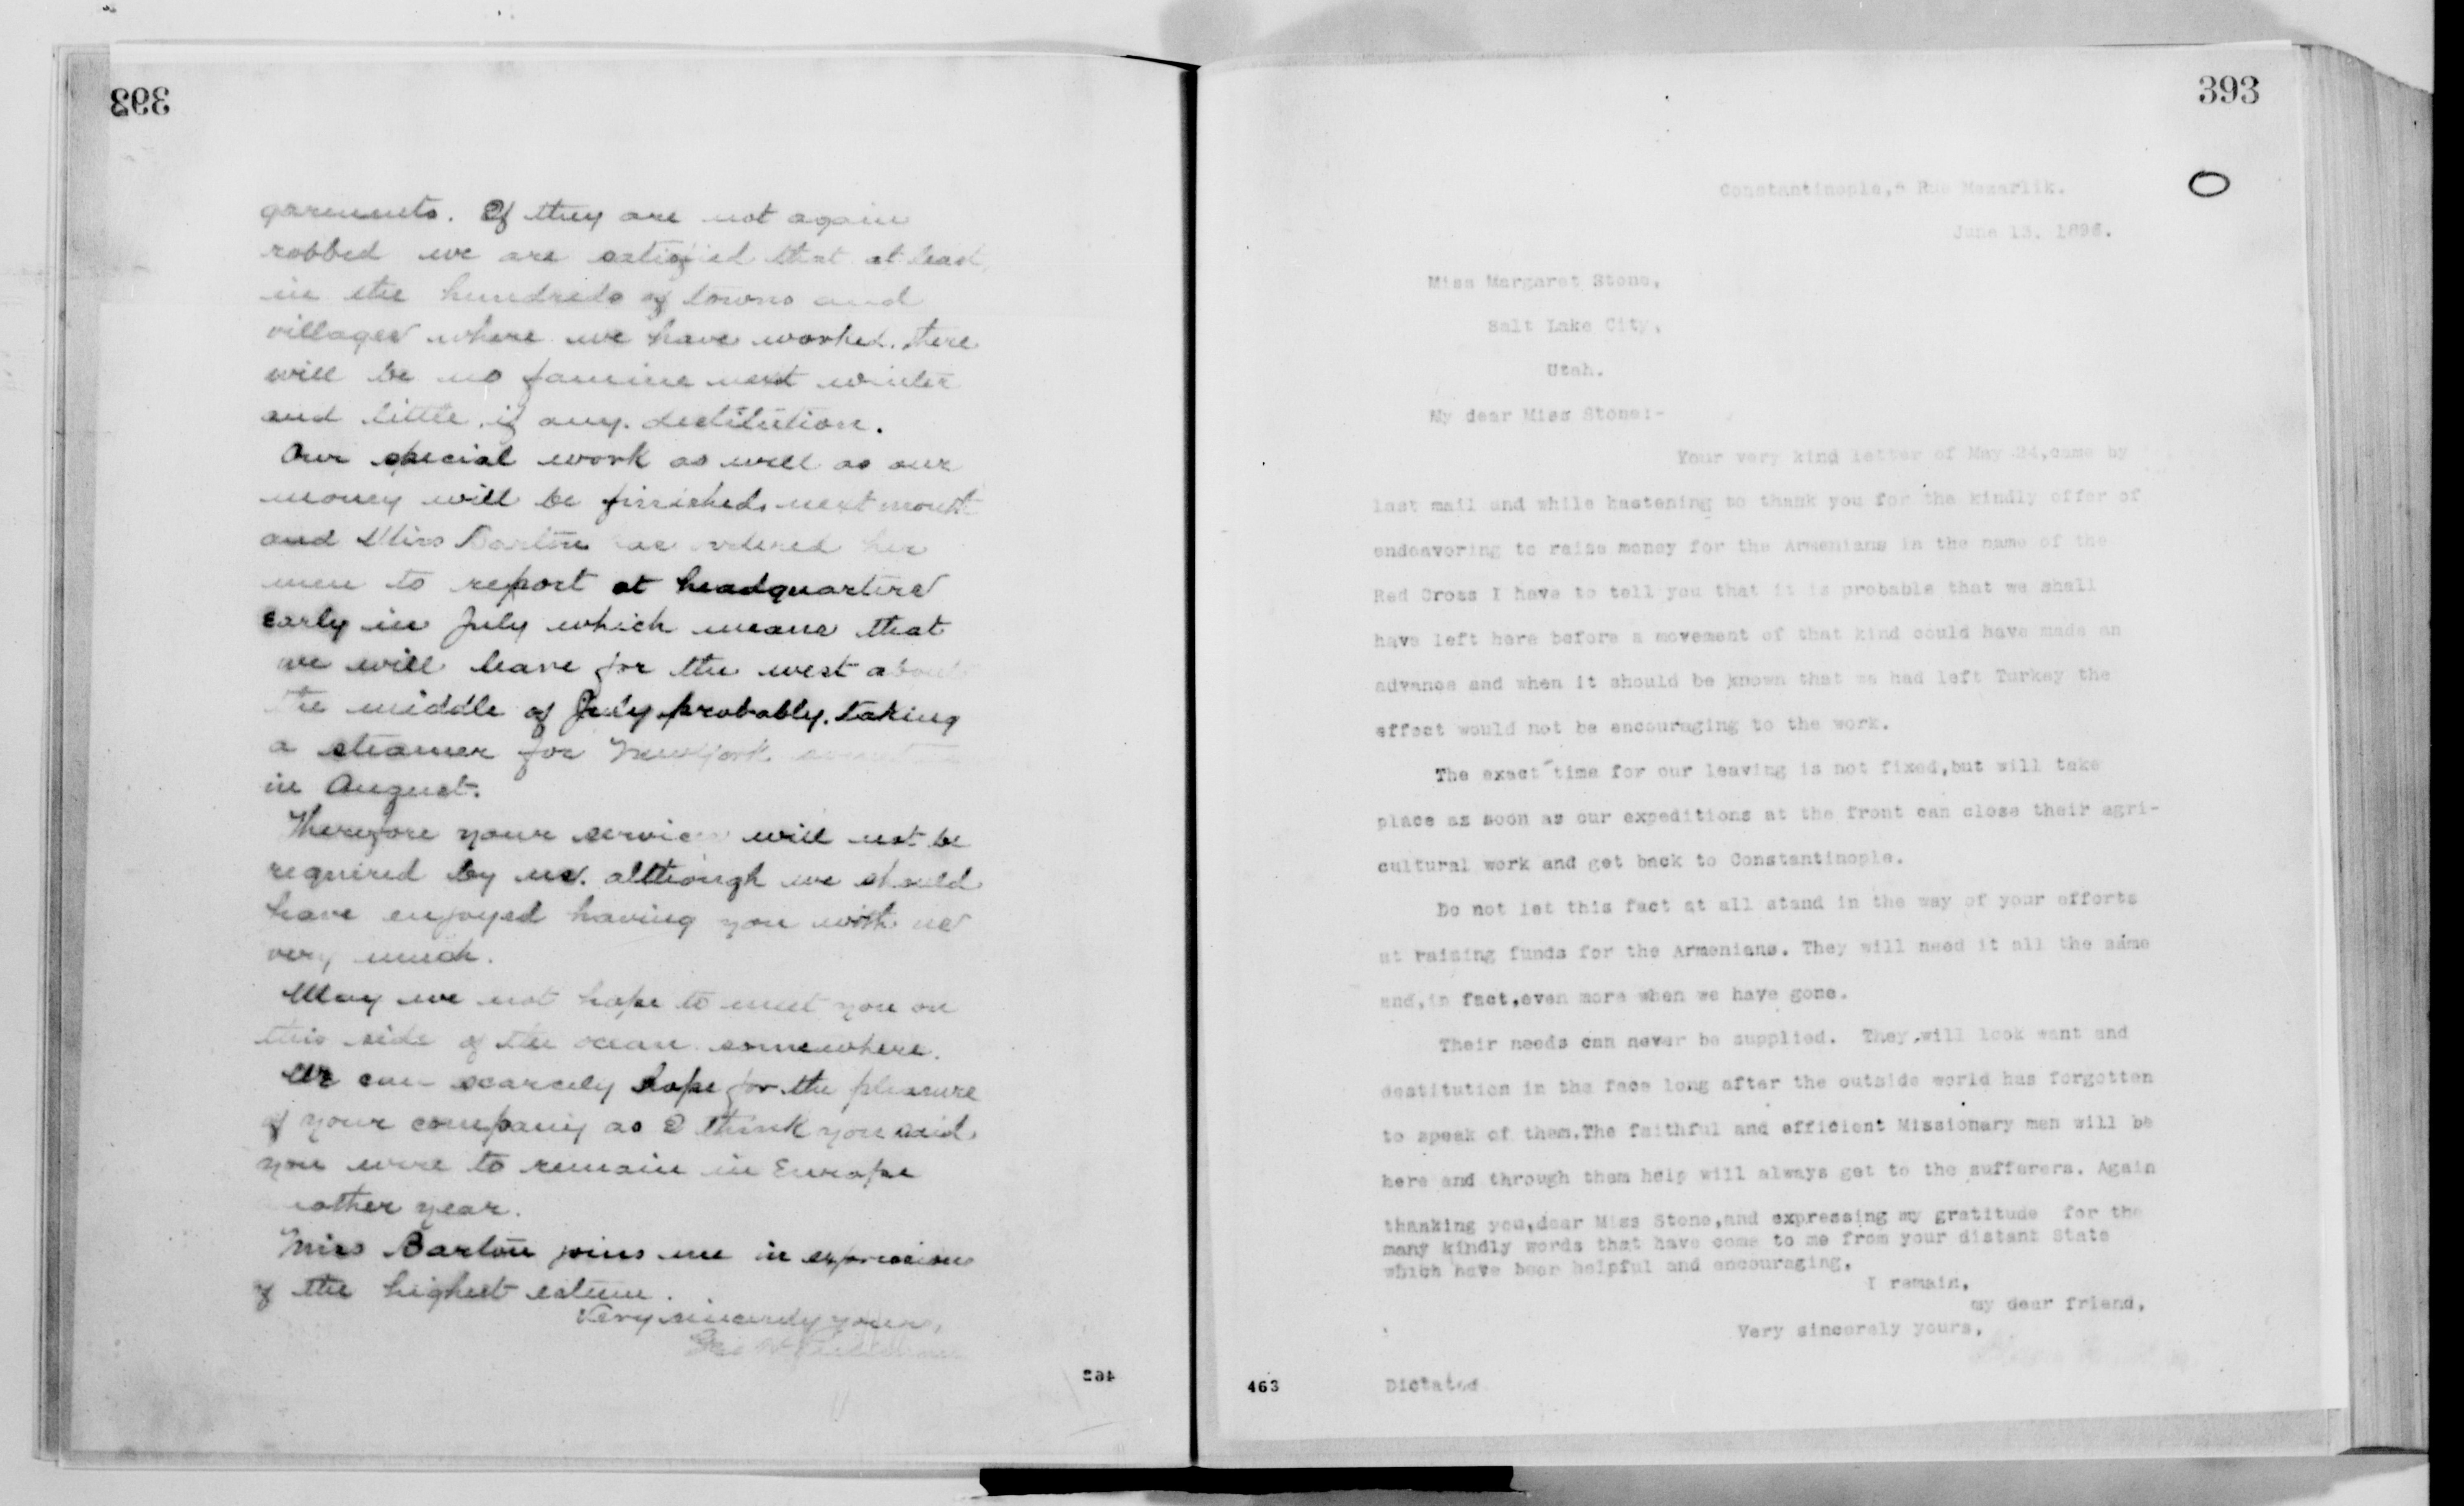 392
garments. If they are not again
robbed we are satisfied that at least,
in the hundreds of towns and
villages where we have worked, there
will be no famine next winter
and little, if any, destitution.
Our special work as well as our
money will be finished next month
and Miss Barton has ordered her
men to report at headquarters
early in July which means that
we will leave for the west about
the middle of July probably, taking
a steamer for New York
in August.
Therefore your service will not be
required by us, although we should
have enjoyed having you with us
very much.
May we not hope to meet you on
this side of the ocean somewhere.
We can scarcely hope for the pleasure
of your company as I think you said
you were to remain in Europe
another year.
Miss Barton joins me in expressions
of the highest esteem.
Very sincerely yours,
Geo H Pullman
462
393
Constantinople, Rue Mezarlik.
June 13. 1896.
Miss Margaret Stone,
Salt Lake City,
Utah.
My dear Miss Stone:-
Your very kind letter of May 24,came by
last mail and while hastening to thank you for the kindly offer of
endeavoring to raise money for the Armenians in the name of the
Red Cross I have to tell you that it is probable that we shall
have left here before a movement of that kind could have made an
advance and when it should be known that we had left Turkey the
effect would not be encouraging to the work.
The exact time for our leaving is not fixed,but will take
place as soon as our expeditions at the front can close their agri-
cultural work and get back to Constantinople.
Do not let this fact at all stand in the way of your efforts
at raising funds for the Armenians. They will need it all the same
and,in fact,even more when we have gone.
Their needs can never be supplied. They will look want and
destitution in the face long after the outside world has forgotten
to speak of them.The faithful and efficient Missionary men will be
here and through them help will always get to the sufferers. Again
thanking you,dear Miss Stone,and expressing my gratitude for the
many kindly words that have come to me from your distant State
which have been helpful and encouraging,
I remain,
my dear friend,
Very sincerely yours,
463
Dictated